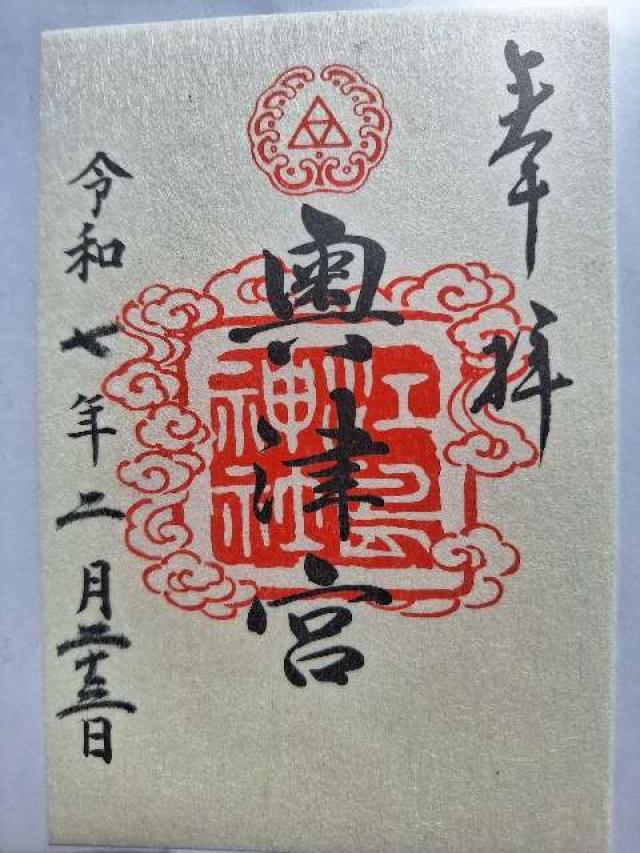 奉拝
奥津宮
江島神社
令和七年二月二十三日